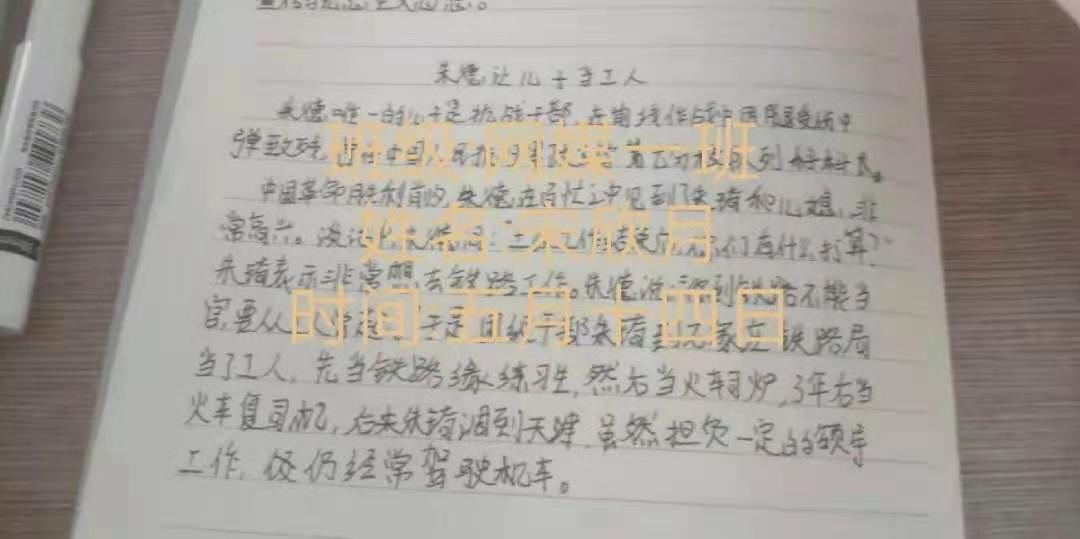 朱德让儿子当工人
朱德唯一的儿子是抗战干部，在前线作战中
弹致残
中国革命胜利前夕，朱德在百忙之中见到了朱琦和儿媳，非
常高兴。谈话中朱德问："工作结束后你们有什么打算？"
朱琦表示非常想去铁路工作。朱德说：到铁路不能当
官，要从 于是团级干部朱琦到石家庄铁路局
当了工人，先当铁路练习生，然右当火车司炉，3年右当
火车复司机，右来朱琦调到天津，虽然担负一定的领导
工作，但仍经常驾驶机车。
班级:网媒一班
姓名:宋欣月
时间:五月十四日